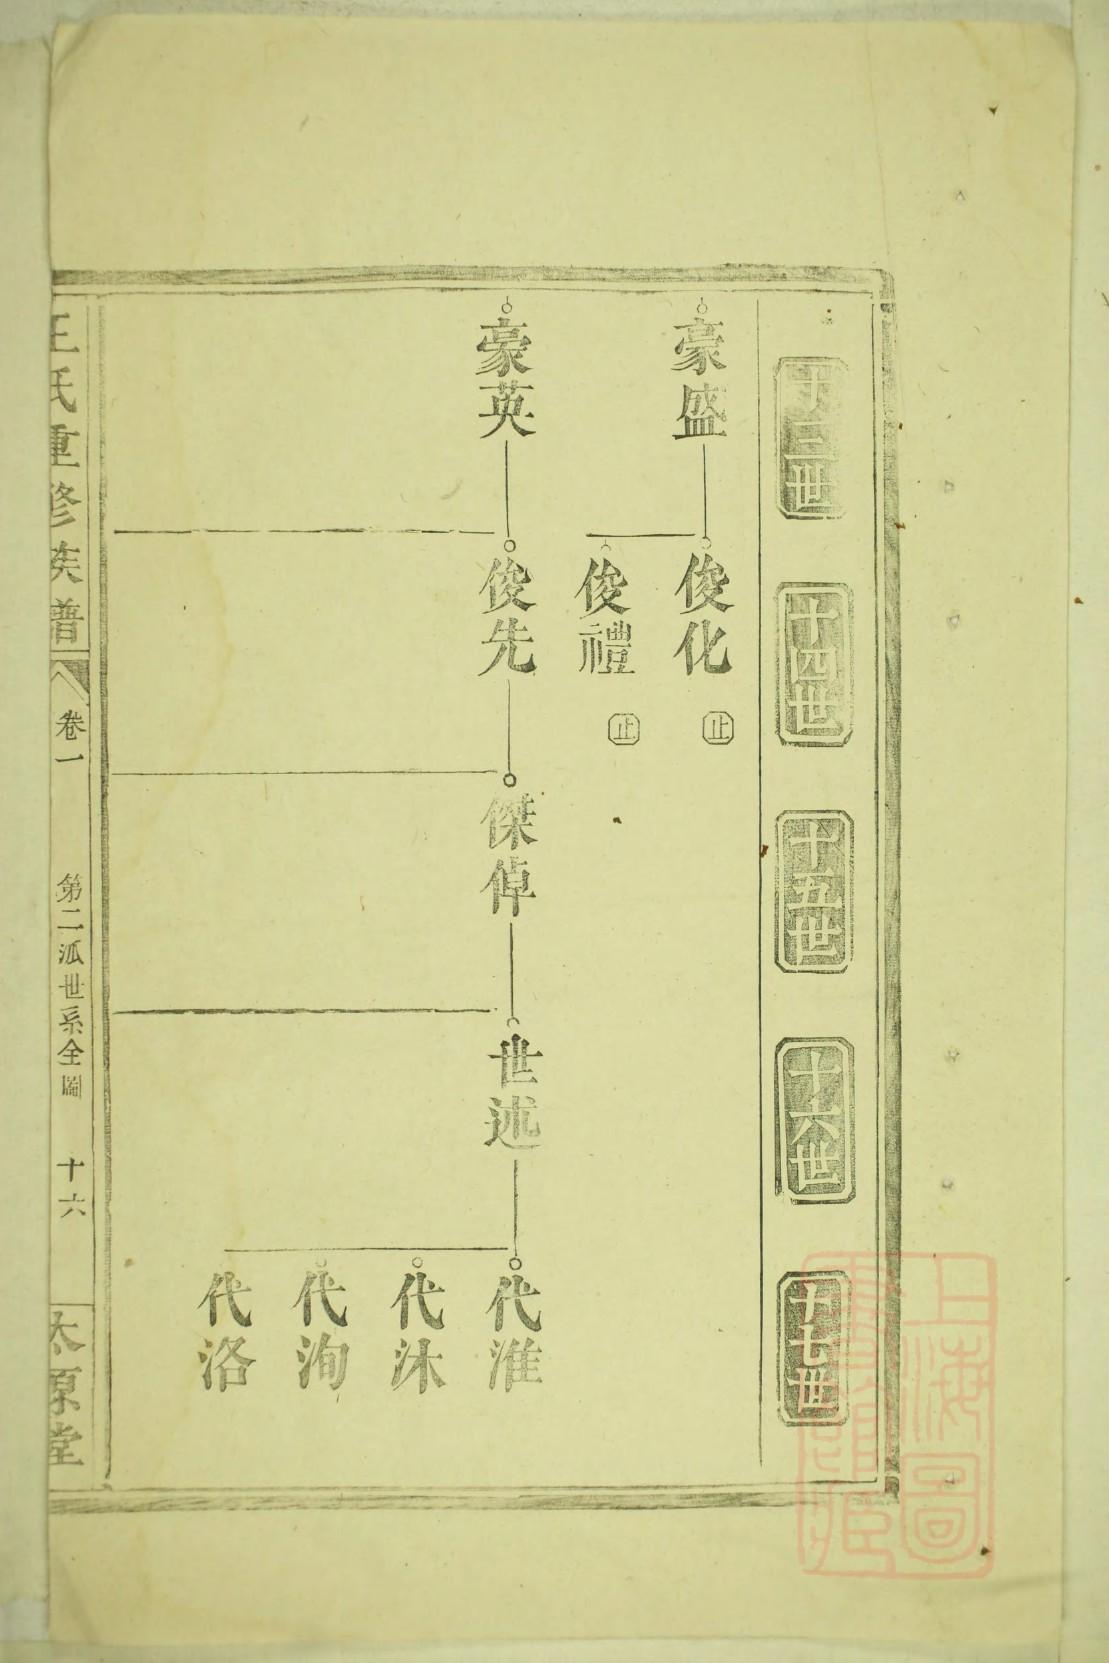 十三世
十四世
十五世
十六世
十七世
豪盛
俊化
止
俊禮
止
豪英
俊先
傑倬
世述
代淮
代沐
代洵
代洛
王氏重修族譜
卷一
第二泒世系全圖
十六
太原堂
上海圖
書館藏